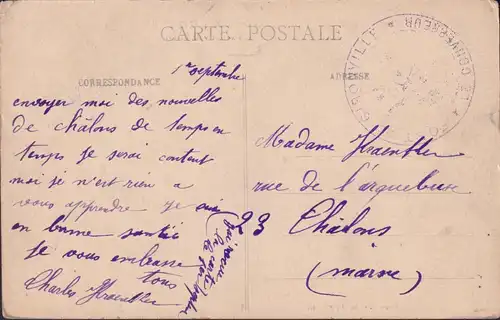 CARTE POSTALE
CORRESPONDANCE
ADRESSE
1er septembre
envoyer moi des nouvelles
de châlons de temps en
temps je serai content
moi je n'est rien a
vous apprendre je suis
en bonne santée
je vous embrasse
tous
Charles Kraentler
Madame Kraentler
rue de l'arquebuse
23 Châlons
(marne)
GIRONVILLE
GOUVERNEUR